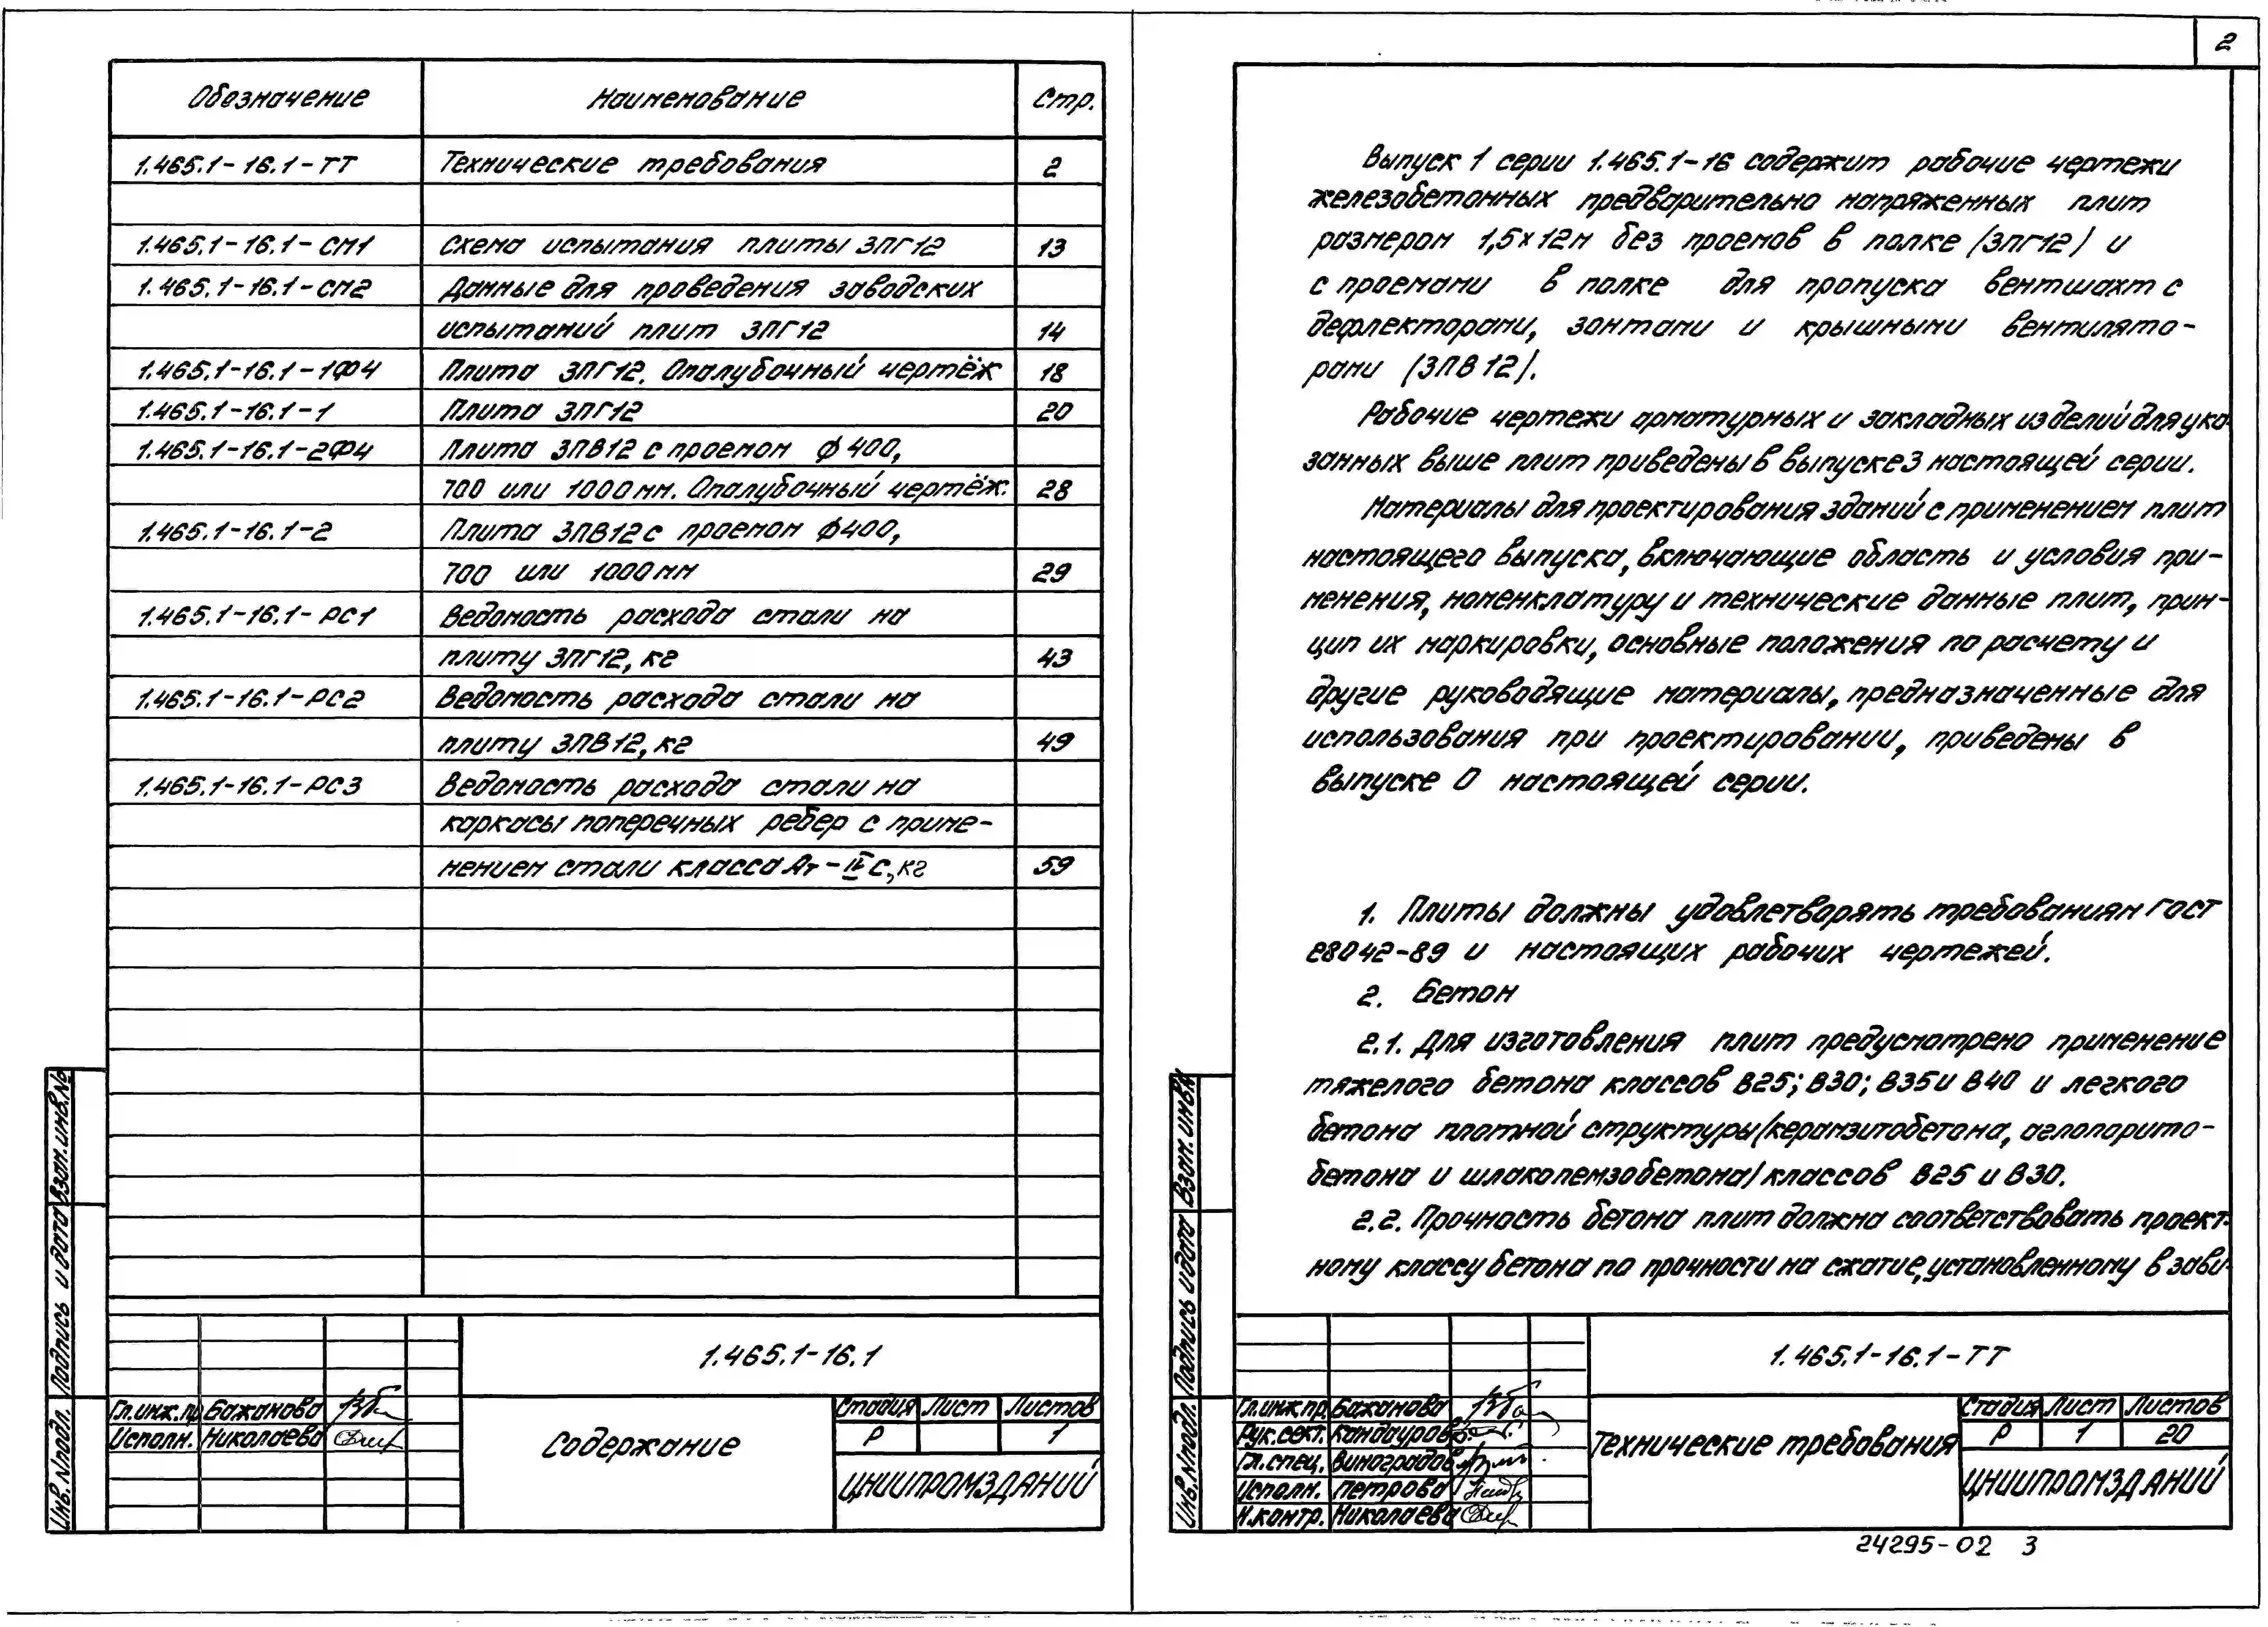 Обозначение Наименование Стр.
1.465.1-16.1-ТТ Технические требования 2
1.465.1-16.1-СМ1 Схема испытания плиты 3ПГ12 13
1.465.1-16.1-СМ2 Данные для проведения заводских
испытаний плит 3ПГ12 14
1.465.1-16.1-1ФЧ Плита 3ПГ12. Опалубочный чертёж 18
1.465.1-16.1-1 Плита 3ПГ12 20
1.465.1-16.1-2ФЧ Плита 3ПВ12 с проемом ф 400,
700 или 1000мм. Опалубочный чертёж. 28
1.465.1-16.1-2 Плита 3ПВ12 с проемом ф400,
700 или 1000мм 29
1.465.1-16.1-РС1 Ведомость расхода стали на
плиту 3ПГ12, кг 43
1.465.1-16.1-РС2 Ведомость расхода стали на
плиту 3ПВ12, кг 49
1.465.1-16.1-РС3 Ведомость расхода стали на
каркасы поперечных ребер с приме-
нением стали класса Ат-IVС, кг 59
Взам.инв.№
Подпись и дата
Инв.№подл.
1.465.1-16.1
Гл.инж.пр Бажанова
Исполн. Николаева
Содержание
Стадия Лист Листов
Р 1
ЦНИИПРОМЗДАНИЙ
2
Выпуск 1 серии 1.465.1-16 содержит рабочие чертежи
железобетонных предварительно напряженных плит
размером 1,5х12м без проемов в полке (3ПГ12) и
с проемами в полке для пропуска вентшахт с
дефлекторами, зонтами и крышными вентилято-
рами (3ПВ12).
Рабочие чертежи арматурных и закладных изделий для ука-
занных выше плит приведены в выпуске 3 настоящей серии.
Материалы для проектирования зданий с применением плит
настоящего выпуска, включающие область и условия при-
менения, номенклатуру и технические данные плит, прин-
цип их маркировки, основные положения по расчету и
другие руководящие материалы, предназначенные для
использования при проектировании, приведены в
выпуске 0 настоящей серии.
1. Плиты должны удовлетворять требованиям ГОСТ
28042-89 и настоящих рабочих чертежей.
2. Бетон
2.1. Для изготовления плит предусмотрено применение
тяжелого бетона классов В25; В30; В35 и В40 и легкого
бетона плотной структуры (керамзитобетона, аглопорито-
бетона и шлакопемзобетона) классов В25 и В30.
2.2. Прочность бетона плит должна соответствовать проект-
ному классу бетона по прочности на сжатие, установленному в зави-
Взам.инв.№
Подпись и дата
Инв.№подл.
1.465.1-16.1-ТТ
Гл.инж.пр. Бажанова
Рук.сект. Кандаурова
Гл.спец. Виноградов
Исполн. Петрова
Н.контр. Николаева
Технические требования
Стадия Лист Листов
Р 1 20
ЦНИИПРОМЗДАНИЙ
24295-02 3